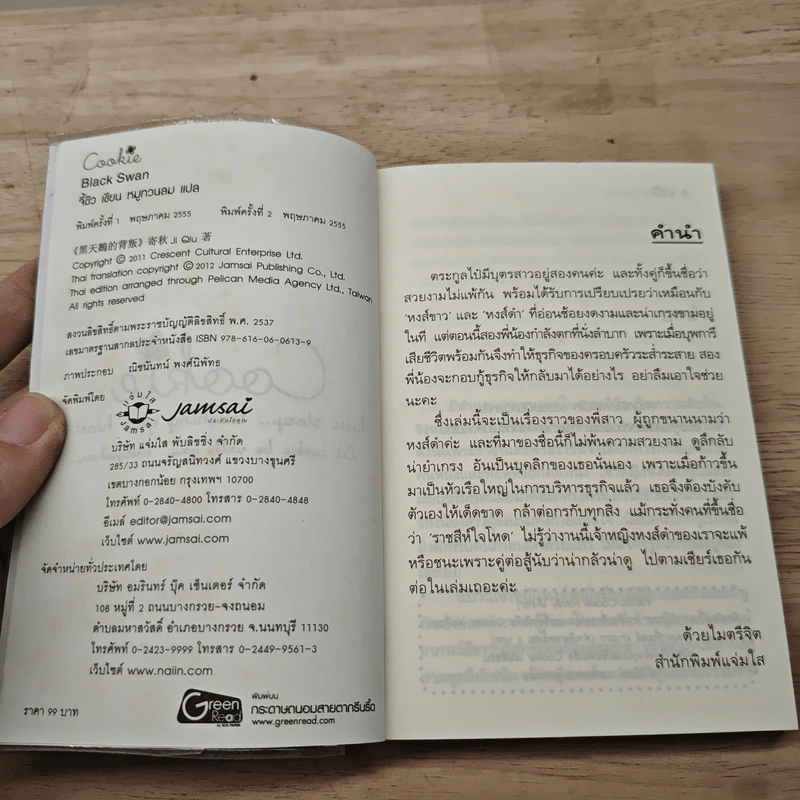 Cookie
Black Swan
จี้ชิว เขียน หมูทวนลม แปล
พิมพ์ครั้งที่ 1 พฤษภาคม 2555 พิมพ์ครั้งที่ 2 พฤษภาคม 2555
《黑天鵝的背叛》寄秋 Ji Qiu 著
Copyright © 2011 Crescent Cultural Enterprise Ltd.
Thai translation copyright © 2012 Jamsai Publishing Co., Ltd.
Thai edition arranged through Pelican Media Agency Ltd., Taiwan
All rights reserved
สงวนลิขสิทธิ์ตามพระราชบัญญัติลิขสิทธิ์ พ.ศ. 2537
เลขมาตรฐานสากลประจำหนังสือ ISBN 978-616-06-0613-9
ภาพประกอบ ณิชนันทน์ พงศ์นิพัทธ
จัดพิมพ์โดย
แจ่มใส
Jamsai
Jamsai
ประทับใจคุณ
บริษัท แจ่มใส พับลิชชิ่ง จำกัด
285/33 ถนนจรัญสนิทวงศ์ แขวงบางขุนศรี
เขตบางกอกน้อย กรุงเทพฯ 10700
โทรศัพท์ 0-2840-4800 โทรสาร 0-2840-4848
อีเมล์ editor@jamsai.com
เว็บไซต์ www.jamsai.com
จัดจำหน่ายทั่วประเทศโดย
บริษัท อมรินทร์ บุ๊ค เซ็นเตอร์ จำกัด
108 หมู่ที่ 2 ถนนบางกรวย-จงถนอม
ตำบลมหาสวัสดิ์ อำเภอบางกรวย จ.นนทบุรี 11130
โทรศัพท์ 0-2423-9999 โทรสาร 0-2449-9561-3
เว็บไซต์ www.naiin.com
ราคา 99 บาท
Green
Read
พิมพ์บน
กระดาษถนอมสายตากรีนรี้ด
www.greenread.com
คำนำ
ตระกูลไป๋มีบุตรสาวอยู่สองคนค่ะ และทั้งคู่ก็ขึ้นชื่อว่า
สวยงามไม่แพ้กัน พร้อมได้รับการเปรียบเปรยว่าเหมือนกับ
'หงส์ขาว' และ 'หงส์ดำ' ที่อ่อนช้อยงดงามและน่าเกรงขามอยู่
ในที แต่ตอนนี้สองพี่น้องกำลังตกที่นั่งลำบาก เพราะเมื่อบุพการี
เสียชีวิตพร้อมกันจึงทำให้ธุรกิจของครอบครัวระส่ำระสาย สอง
พี่น้องจะกอบกู้ธุรกิจให้กลับมาได้อย่างไร อย่าลืมเอาใจช่วย
นะคะ
ซึ่งเล่มนี้จะเป็นเรื่องราวของพี่สาว ผู้ถูกขนานนามว่า
หงส์ดำค่ะ และที่มาของชื่อนี้ก็ไม่พ้นความสวยงาม ดูลึกลับ
น่ายำเกรง อันเป็นบุคลิกของเธอนั่นเอง เพราะเมื่อก้าวขึ้น
มาเป็นหัวเรือใหญ่ในการบริหารธุรกิจแล้ว เธอจึงต้องบังคับ
ตัวเองให้เด็ดขาด กล้าต่อกรกับทุกสิ่ง แม้กระทั่งคนที่ขึ้นชื่อ
ว่า 'ราชสีห์ใจโหด' ไม่รู้ว่างานนี้เจ้าหญิงหงส์ดำของเราจะแพ้
หรือชนะเพราะคู่ต่อสู้นับว่าน่ากลัวน่าดู ไปตามเชียร์เธอกัน
ต่อในเล่มเถอะค่ะ
ด้วยไมตรีจิต
สำนักพิมพ์แจ่มใส